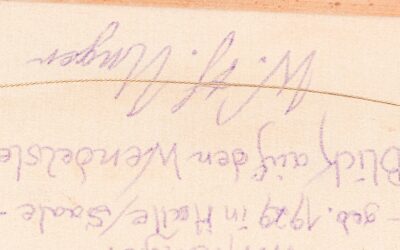 - geb. 1929 in Halle/Saale -
Blick auf den Wendelste
W. H. Unger